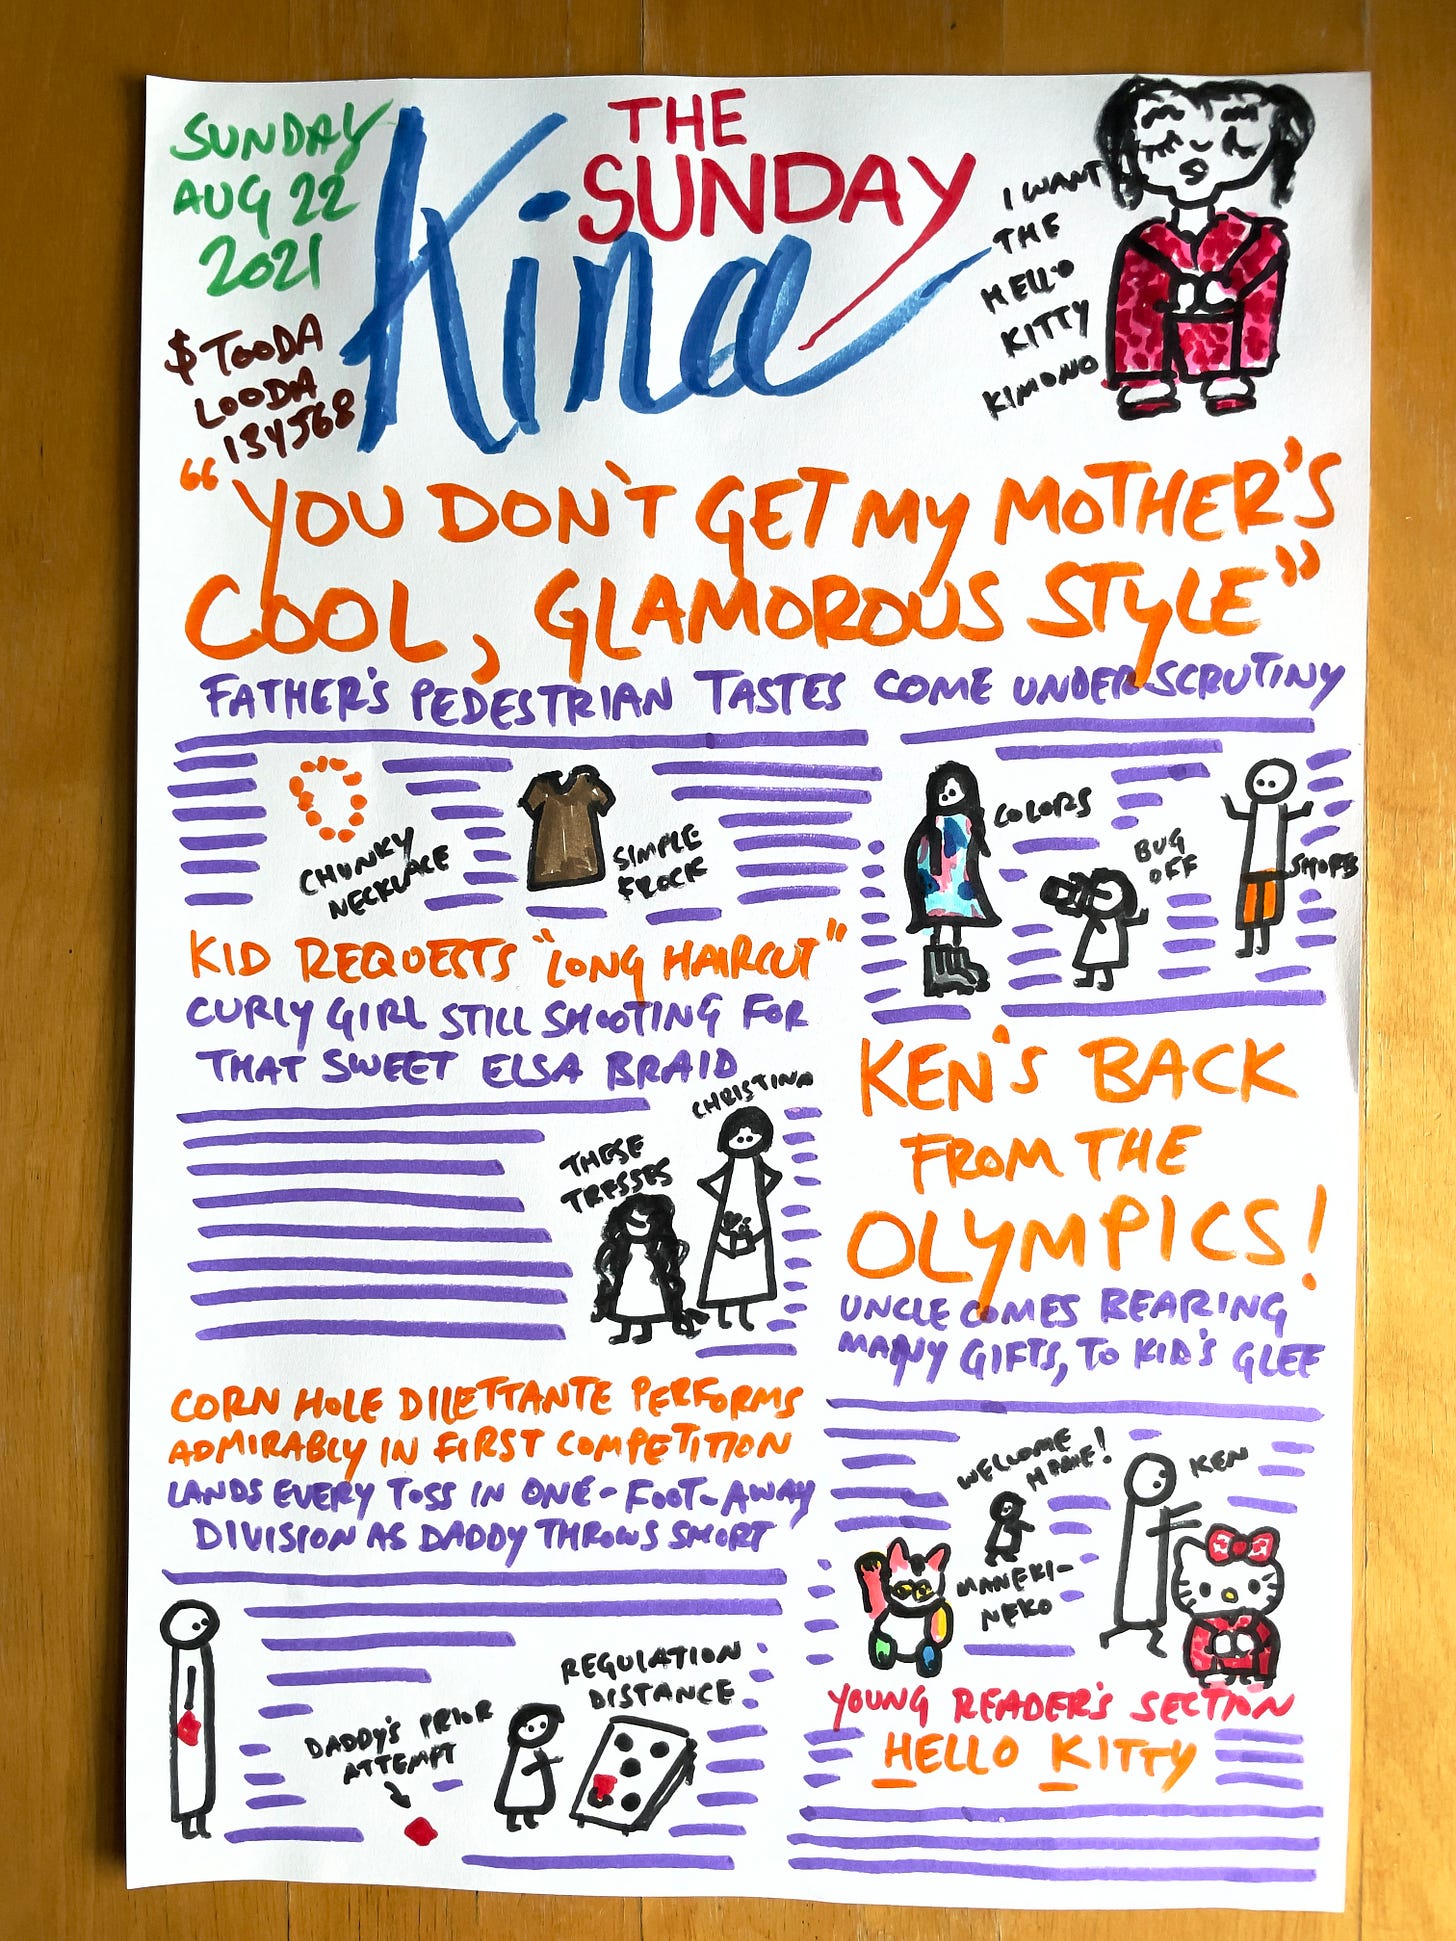 SUNDAY
AUG 22
2021
$ TOODA
LOODA
134568
THE
SUNDAY
Kina
I WANT
THE
HELLO
KITTY
KIMONO
"YOU DON'T GET MY MOTHER'S
COOL, GLAMOROUS STYLE"
FATHER'S PEDESTRIAN TASTES COME UNDER SCRUTINY
CHUNKY
NECKLACE
SIMPLE
FROCK
COLORS
BUG
OFF
SHORTS
KID REQUESTS "LONG HAIRCUT"
CURLY GIRL STILL SHOOTING FOR
THAT SWEET ELSA BRAID
CHRISTINA
THESE
TRESSES
CORN HOLE DILETTANTE PERFORMS
ADMIRABLY IN FIRST COMPETITION
LANDS EVERY TOSS IN ONE-FOOT-AWAY
DIVISION AS DADDY THROWS SHORT
DADDY'S PRIOR
ATTEMPT
REGULATION
DISTANCE
KEN'S BACK
FROM THE
OLYMPICS!
UNCLE COMES BEARING
MANY GIFTS, TO KID'S GLEE
WELCOME
HOME!
KEN
MANEKI-
NEKO
YOUNG READER'S SECTION
HELLO KITTY